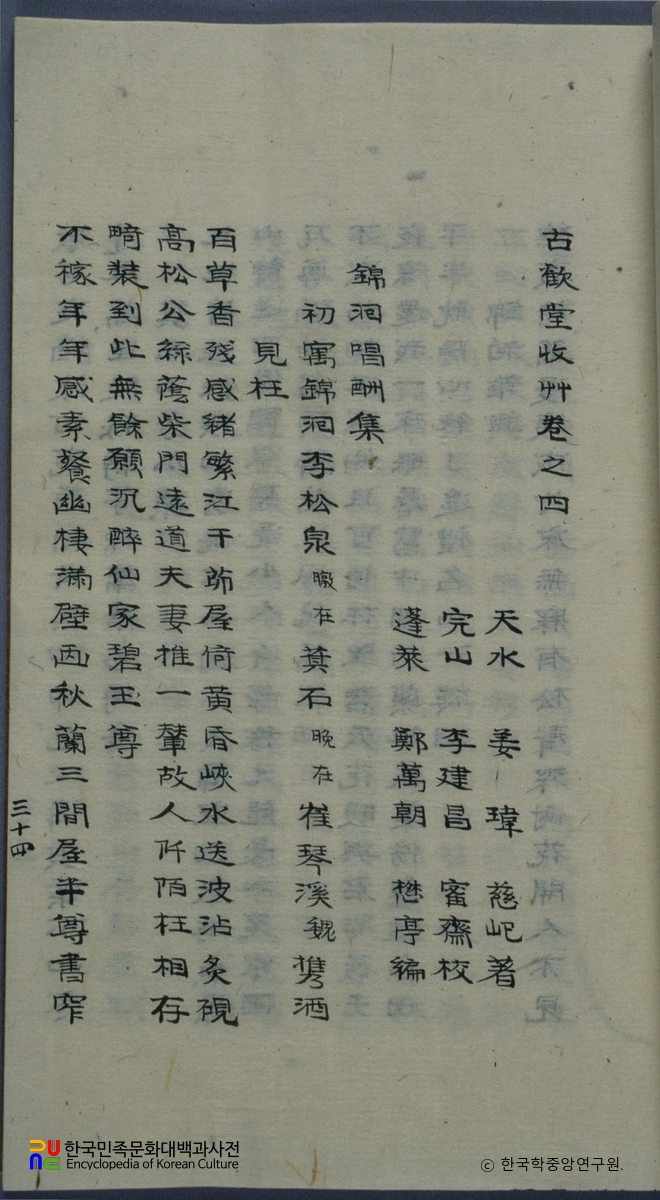 古歡堂收艸卷之四
天水 姜 瑋 慈屺著
完山 李建昌 寗齋校
蓬萊 鄭萬朝 懋亭編
錦洄唱酬集
初寓錦洄李松泉 㬉在 箕石 晩在 崔琴溪 魏 携酒
見枉
百草香殘感緖繁江干茆屋倚黃昏峽水送波沾炙硯
高松公綠蔭柴門遠道夫妻推一輦故人阡陌枉相存
畸裝到此無餘願沉醉仙家碧玉尊
不稼年年感素餐幽棲滿壁画秋蘭三間屋半尊書窄
三十四
한국민족문화대백과사전
Encyclopedia of Korean Culture
© 한국학중앙연구원.